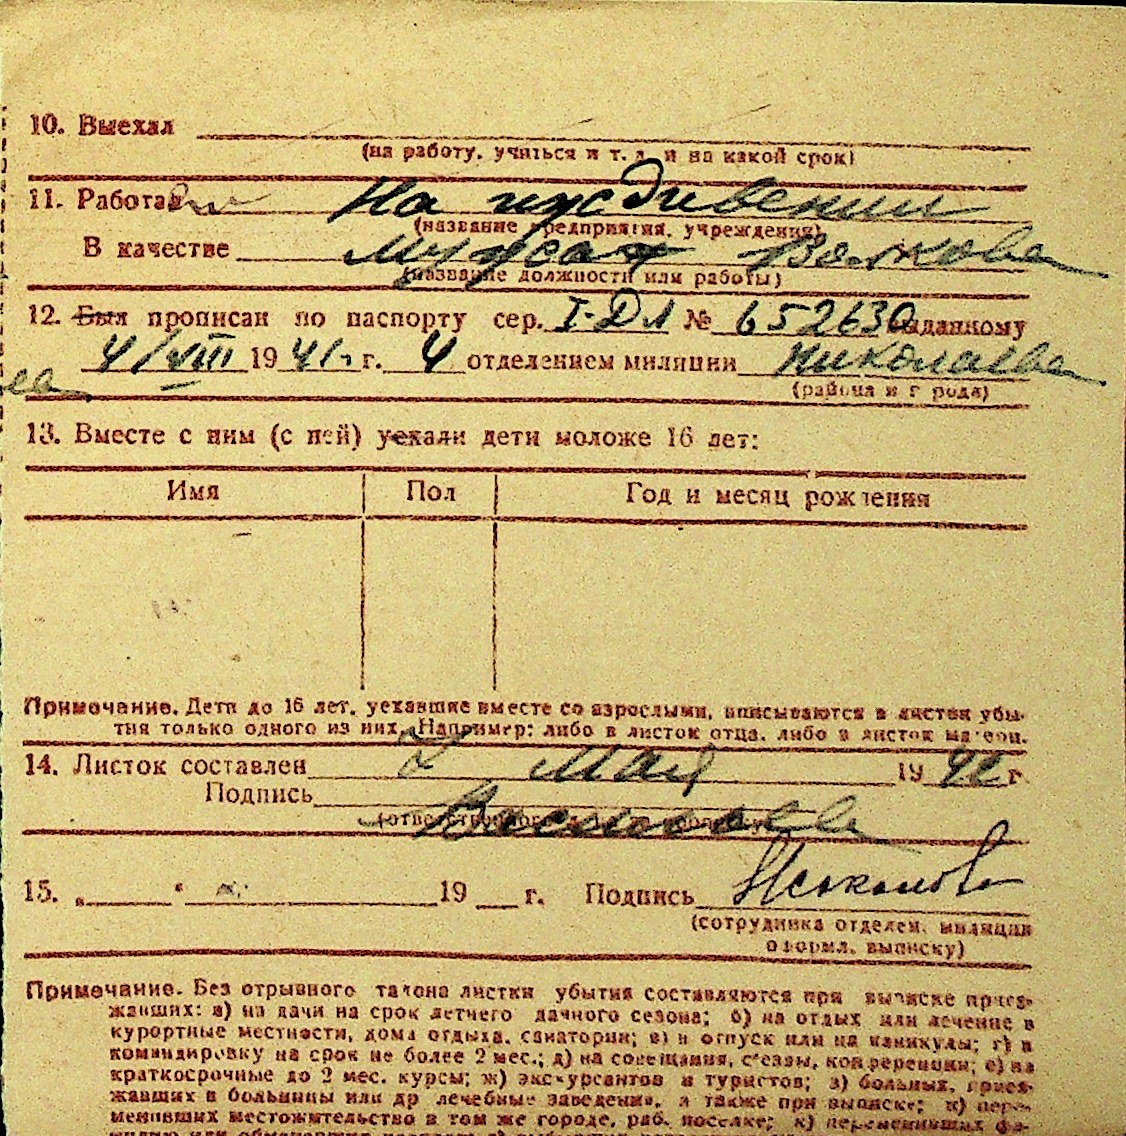 10. Выехал
(на работу, учиться и т. д. и на какой срок)
11. Работал На иждивении
(название предприятия, учреждения)
В качестве мужа Волкова
(название должности или работы)
12. Был прописан по паспорту сер. I-ДЛ № 652630 выданному
4/VIII 1941 г. 4 отделением милиции Николаева
(района и города)
13. Вместе с ним (с ней) уехали дети моложе 16 лет:
Имя Пол Год и месяц рождения
Примечание. Дети до 16 лет, уехавшие вместе со взрослыми, вписываются в листок убы-
тия только одного из них. Например: либо в листок отца, либо в листок матери.
14. Листок составлен 2 мая 19 г.
Подпись
15. „ “ 19 г. Подпись
(сотрудника отделен. милиции
оформл. выписку)
Примечание. Без отрывного талона листки убытия составляются при выписке приез-
жавших: а) на дачи на срок летнего дачного сезона; б) на отдых или лечение в
курортные местности, дома отдыха, санатории; в) в отпуск или на каникулы; г) в
командировку на срок не более 2 мес.; д) на совещания, с'езды, конференции; е) на
краткосрочные до 2 мес. курсы; ж) экскурсантов и туристов; з) больных, приез-
жавших в больницы или др лечебные заведения, а также при выписке; и) пере-
менивших местожительство в том же городе, раб. поселке; к) переменивших фа-